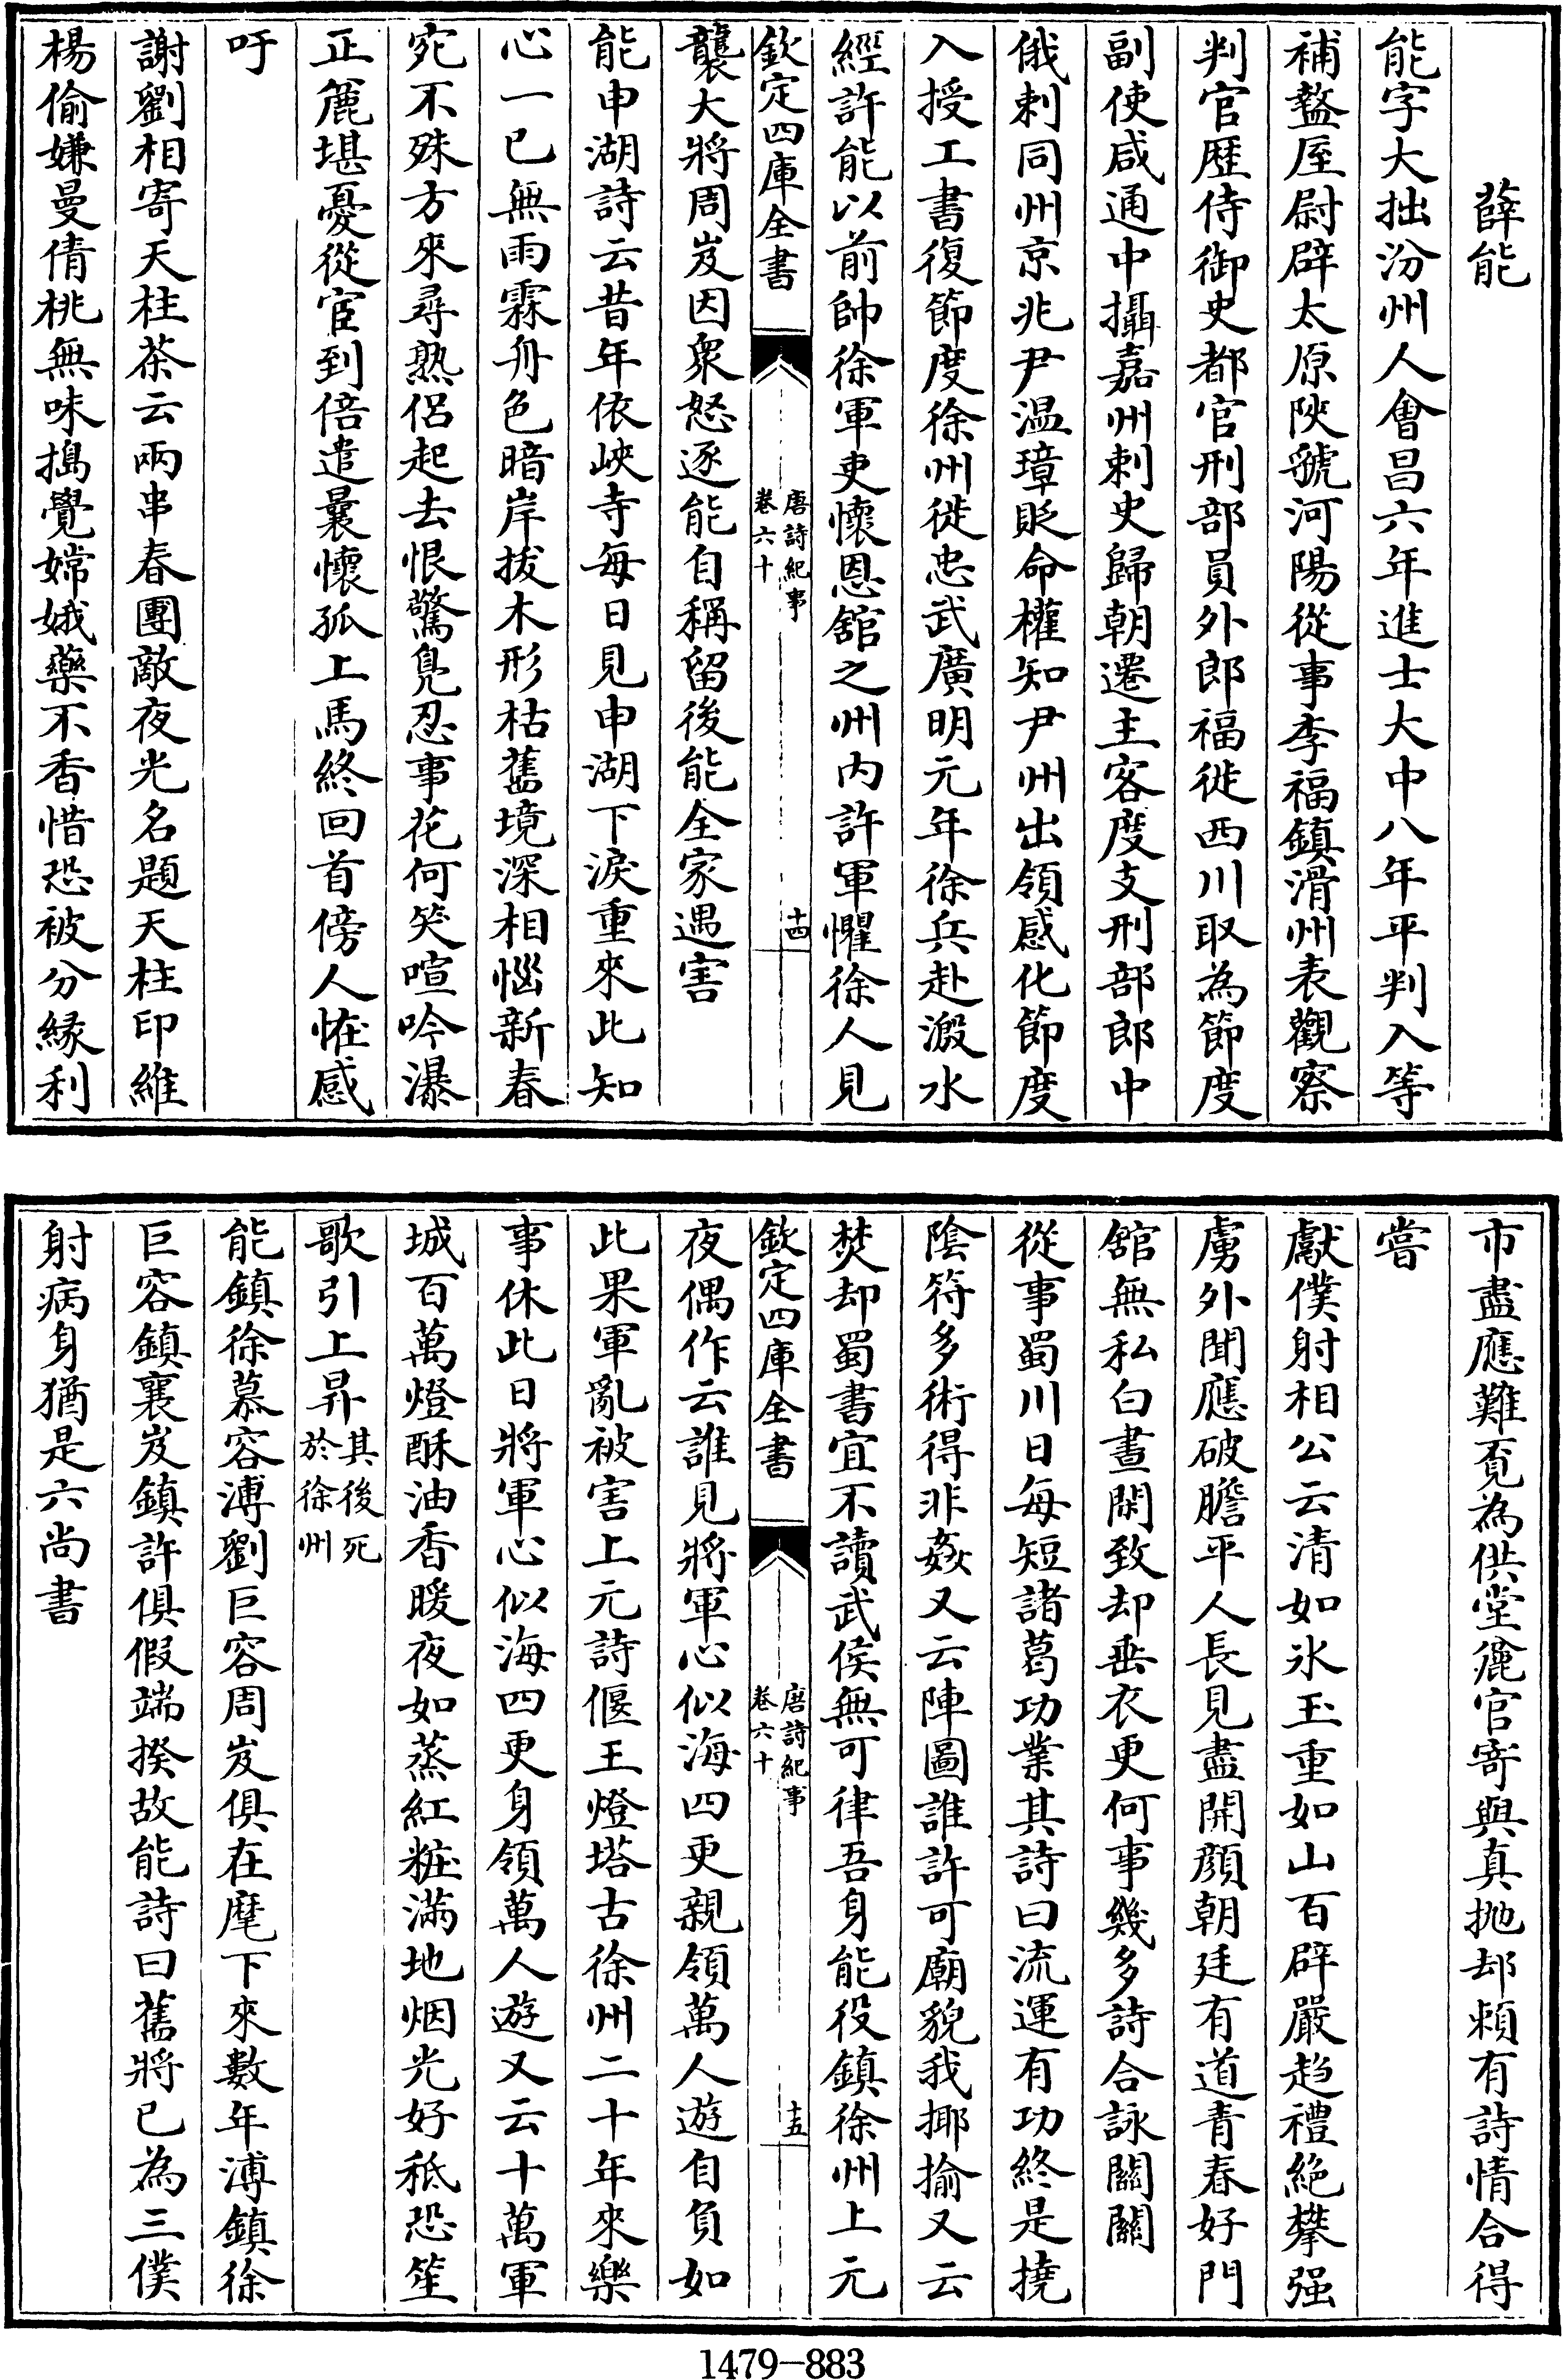 薛能
能字大拙汾州人會昌六年進士大中八年平判入等
補盩厔尉辟太原陜虢河陽從事李福鎮滑州表觀察
判官歴侍御史都官刑部員外郎福徙西川取為節度
副使咸通中攝嘉州刺史歸朝遷主客度支刑部郎中
俄刺同州京兆尹温璋貶命權知尹州出領感化節度
入授工書復節度徐州徙忠武廣明元年徐兵赴溵水
經許能以前帥徐軍吏懐恩舘之州内許軍懼徐人見
欽定四庫全書
唐詩紀事
卷六十
十四
襲大將周岌因衆怒逐能自稱留後能全家遇害
能申湖詩云昔年依峽寺每日見申湖下淚重來此知
心一已無雨霖舟色暗岸拔木形枯舊境深相惱新春
宛不殊方來尋熟侶起去恨驚鳧忍事花何笑喧吟瀑
正麄堪憂從宦到倍遣曩懷孤上馬終回首傍人恠感
吁
謝劉相寄天柱茶云兩串春團敵夜光名題天柱印維
楊偷嫌曼倩桃無味搗覺嫦娥藥不香惜恐被分縁利
市盡應難覓為供堂麄官寄與真抛却頼有詩情合得
嘗
獻僕射相公云清如氷玉重如山百辟嚴趋禮絶攀强
虜外聞應破膽平人長見盡開顔朝廷有道青春好門
舘無私白晝閑致却垂衣更何事幾多詩合詠關關
從事蜀川日每短諸葛功業其詩曰流運有功終是撓
陰符多術得非姦又云陣圖誰許可廟貌我揶揄又云
焚却蜀書宜不讀武侯無可律吾身能役鎮徐州上元
欽定四庫全書
唐詩紀事
卷六十
十五
夜偶作云誰見將軍心似海四更親領萬人遊自負如
此果軍亂被害上元詩偃王燈塔古徐州二十年來樂
事休此日將軍心似海四更身領萬人遊又云十萬軍
城百萬燈酥油香暖夜如蒸紅粧滿地烟光好秪恐笙
歌引上昇其後死於徐州
能鎮徐慕容溥劉巨容周岌俱在麾下來數年溥鎮徐
巨容鎮襄岌鎮許俱假端揆故能詩曰舊將已為三僕
射病身猶是六尚書
1479-883